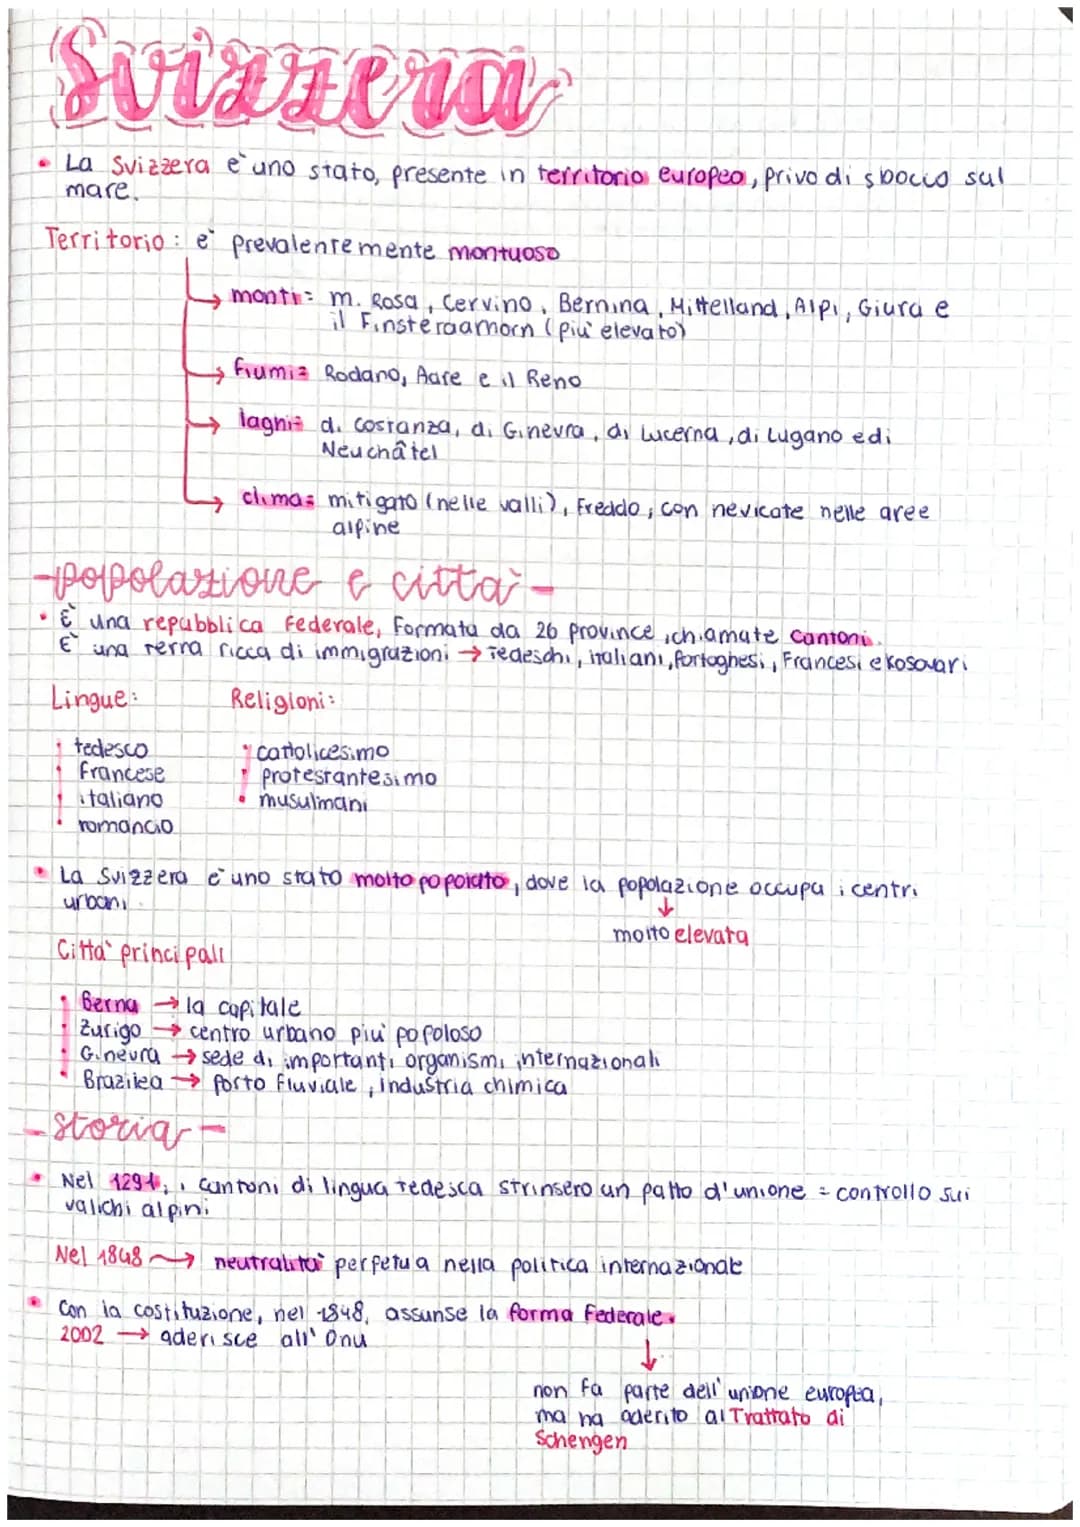 Svizzera
• La Svizzera è uno stato, presente in territorio europeo, privo di sbocco sul
mare.
Territorio: è prevalentemente montuoso
→ monti= m. Rosa, Cervino, Bernina, Mittelland, Alpi, Giura e
il Finsteraamorn (più elevato)
→ fiumi= Rodano, Aare e il Reno
→ laghi= di costanza, di Ginevra, di Lucerna, di Lugano e di
Neuchâtel
→ clima= mitigato (nelle valli), Freddo, con nevicate nelle aree
alpine
-popolazione e città-
• È una repubblica Federale, Formata da 26 province, chiamate Cantoni.
È una terra ricca di immigrazioni → Tedeschi, italiani, Portoghesi, Francesi e kosovari
Lingue: Religioni:
• tedesco • cattolicesimo
• Francese • protestantesimo
• italiano • musulmani
• romancio
• La Svizzera è uno stato molto popolato, dove la popolazione occupa i centri
urbani.
↓
molto elevata
Città principali
• Berna → la capitale
• Zurigo → centro urbano più popoloso
• Ginevra → sede di importanti organismi internazionali
• Brazilea → porto fluviale, industria chimica
-storia-
• Nel 1291, i cantoni di lingua tedesca strinsero un patto d'unione = controllo sui
valichi alpini
Nel 1848 → neutralità perpetua nella politica internazionale
• Con la costituzione, nel 1848, assunse la forma Federale.
2002 → aderisce all'Onu
↓
non fa parte dell'unione europea,
ma ha aderito al Trattato di
Schengen